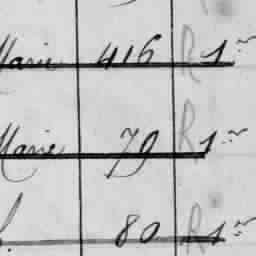 Marie 416 R 1er
Marie 79 R 1er
80 R 1er